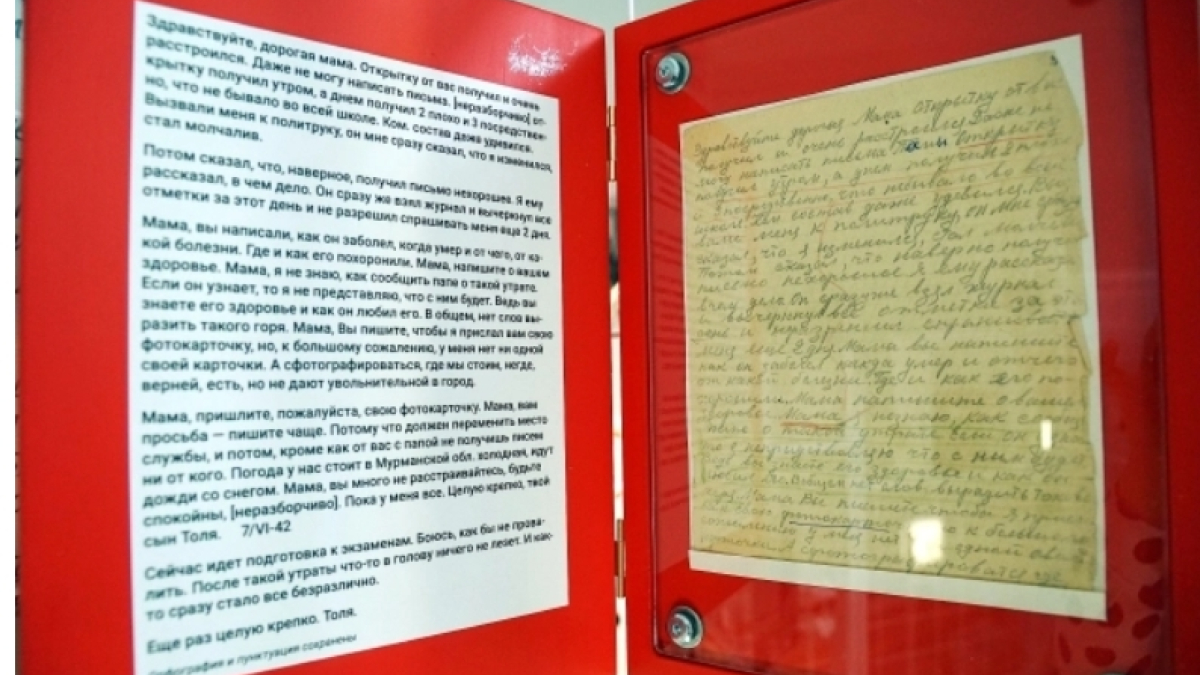 Здравствуйте, дорогая мама. Открытку от вас получил и очень
расстроился. Даже не могу написать письма. [неразборчиво] от-
крытку получил утром, а днем получил 2 плохо и 3 посредствен-
но, что не бывало во всей школе. Ком. состав даже удивился.
Вызвали меня к политруку, он мне сразу сказал, что я изменился,
стал молчалив.
Потом сказал, что, наверное, получил письмо нехорошее. Я ему
рассказал, в чем дело. Он сразу же взял журнал и вычеркнул все
отметки за этот день и не разрешил спрашивать меня еще 2 дня.
Мама, вы написали, как он заболел, когда умер и от чего, от ка-
кой болезни. Где и как его похоронили. Мама, напишите о вашем
здоровье. Мама, я не знаю, как сообщить папе о такой утрате.
Если он узнает, то я не представляю, что с ним будет. Ведь вы
знаете его здоровье и как он любил его. В общем, нет слов вы-
разить такого горя. Мама, Вы пишите, чтобы я прислал вам свою
фотокарточку, но, к большому сожалению, у меня нет ни одной
своей карточки. А сфотографироваться, где мы стоим, негде,
верней, есть, но не дают увольнительной в город.
Мама, пришлите, пожалуйста, свою фотокарточку. Мама, вам
просьба — пишите чаще. Потому что должен переменить место
службы, и потом, кроме как от вас с папой не получишь писем
ни от кого. Погода у нас стоит в Мурманской обл. холодная, идут
дожди со снегом. Мама, вы много не расстраивайтесь, будьте
спокойны, [неразборчиво]. Пока у меня все. Целую крепко, твой
сын Толя. 7/VI-42
Сейчас идет подготовка к экзаменам. Боюсь, как бы не прова-
лить. После такой утраты что-то в голову ничего не лезет. И как-
то сразу стало все безразлично.
Еще раз целую крепко. Толя.
Орфография и пунктуация сохранены
Здравствуйте дорогая Мама Открытку от вас
получил и очень расстроился Даже не
могу написать письма открытку
получил утром, а днем получил 2 плохо
и 3 посредственно, что небывало во всей
школе. Ком состав даже удивился. Выз
вали меня к политруку, он мне сразу
сказал, что я изменился, стал молчалив
Потом сказал что наверно получил
письмо нехорошее я ему рассказал
в чем дело Он сразу же взял журнал
и вычеркнул все отметки за этот
день и неразрешил спрашивать
меня еще 2 дня. Мама вы напишите
как он заболел когда умер и отчего
от какой болезни. Где и как его по-
хоронили. Мама напишите о вашем
здоровье Мама я незнаю, как сообщить
папе о такой утрате если он узнает
то я непредставляю что с ним будет
ведь вы знаете его здоровье и как он
любил его. Вобщем нет слов выразить такого
горя. Мама Вы пишите чтобы я прислал
вам свою фотокарточку но к большому
сожалению у меня нет ни одной своей
карточки. А сфотографироваться где